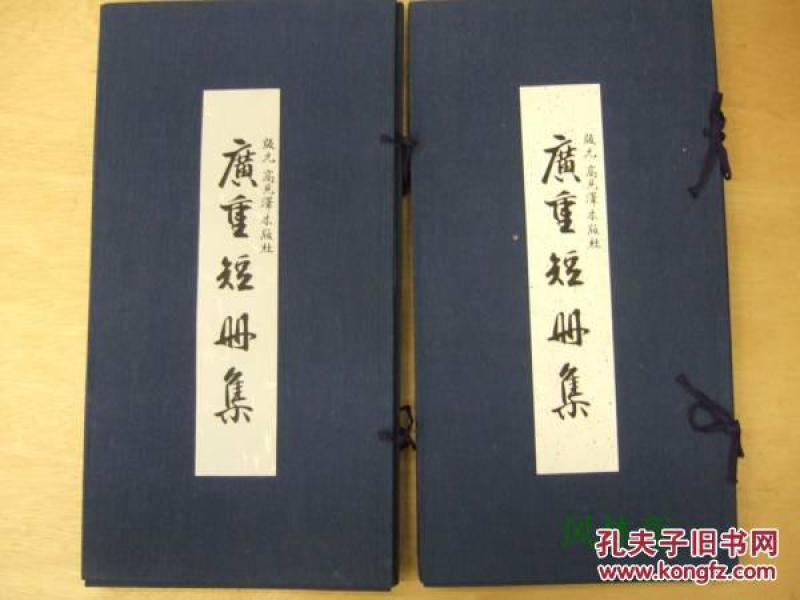 版元 高見澤木版社
廣重短册集
版元 高見澤木版社
廣重短册集
孔夫子旧书网
www.kongfz.com